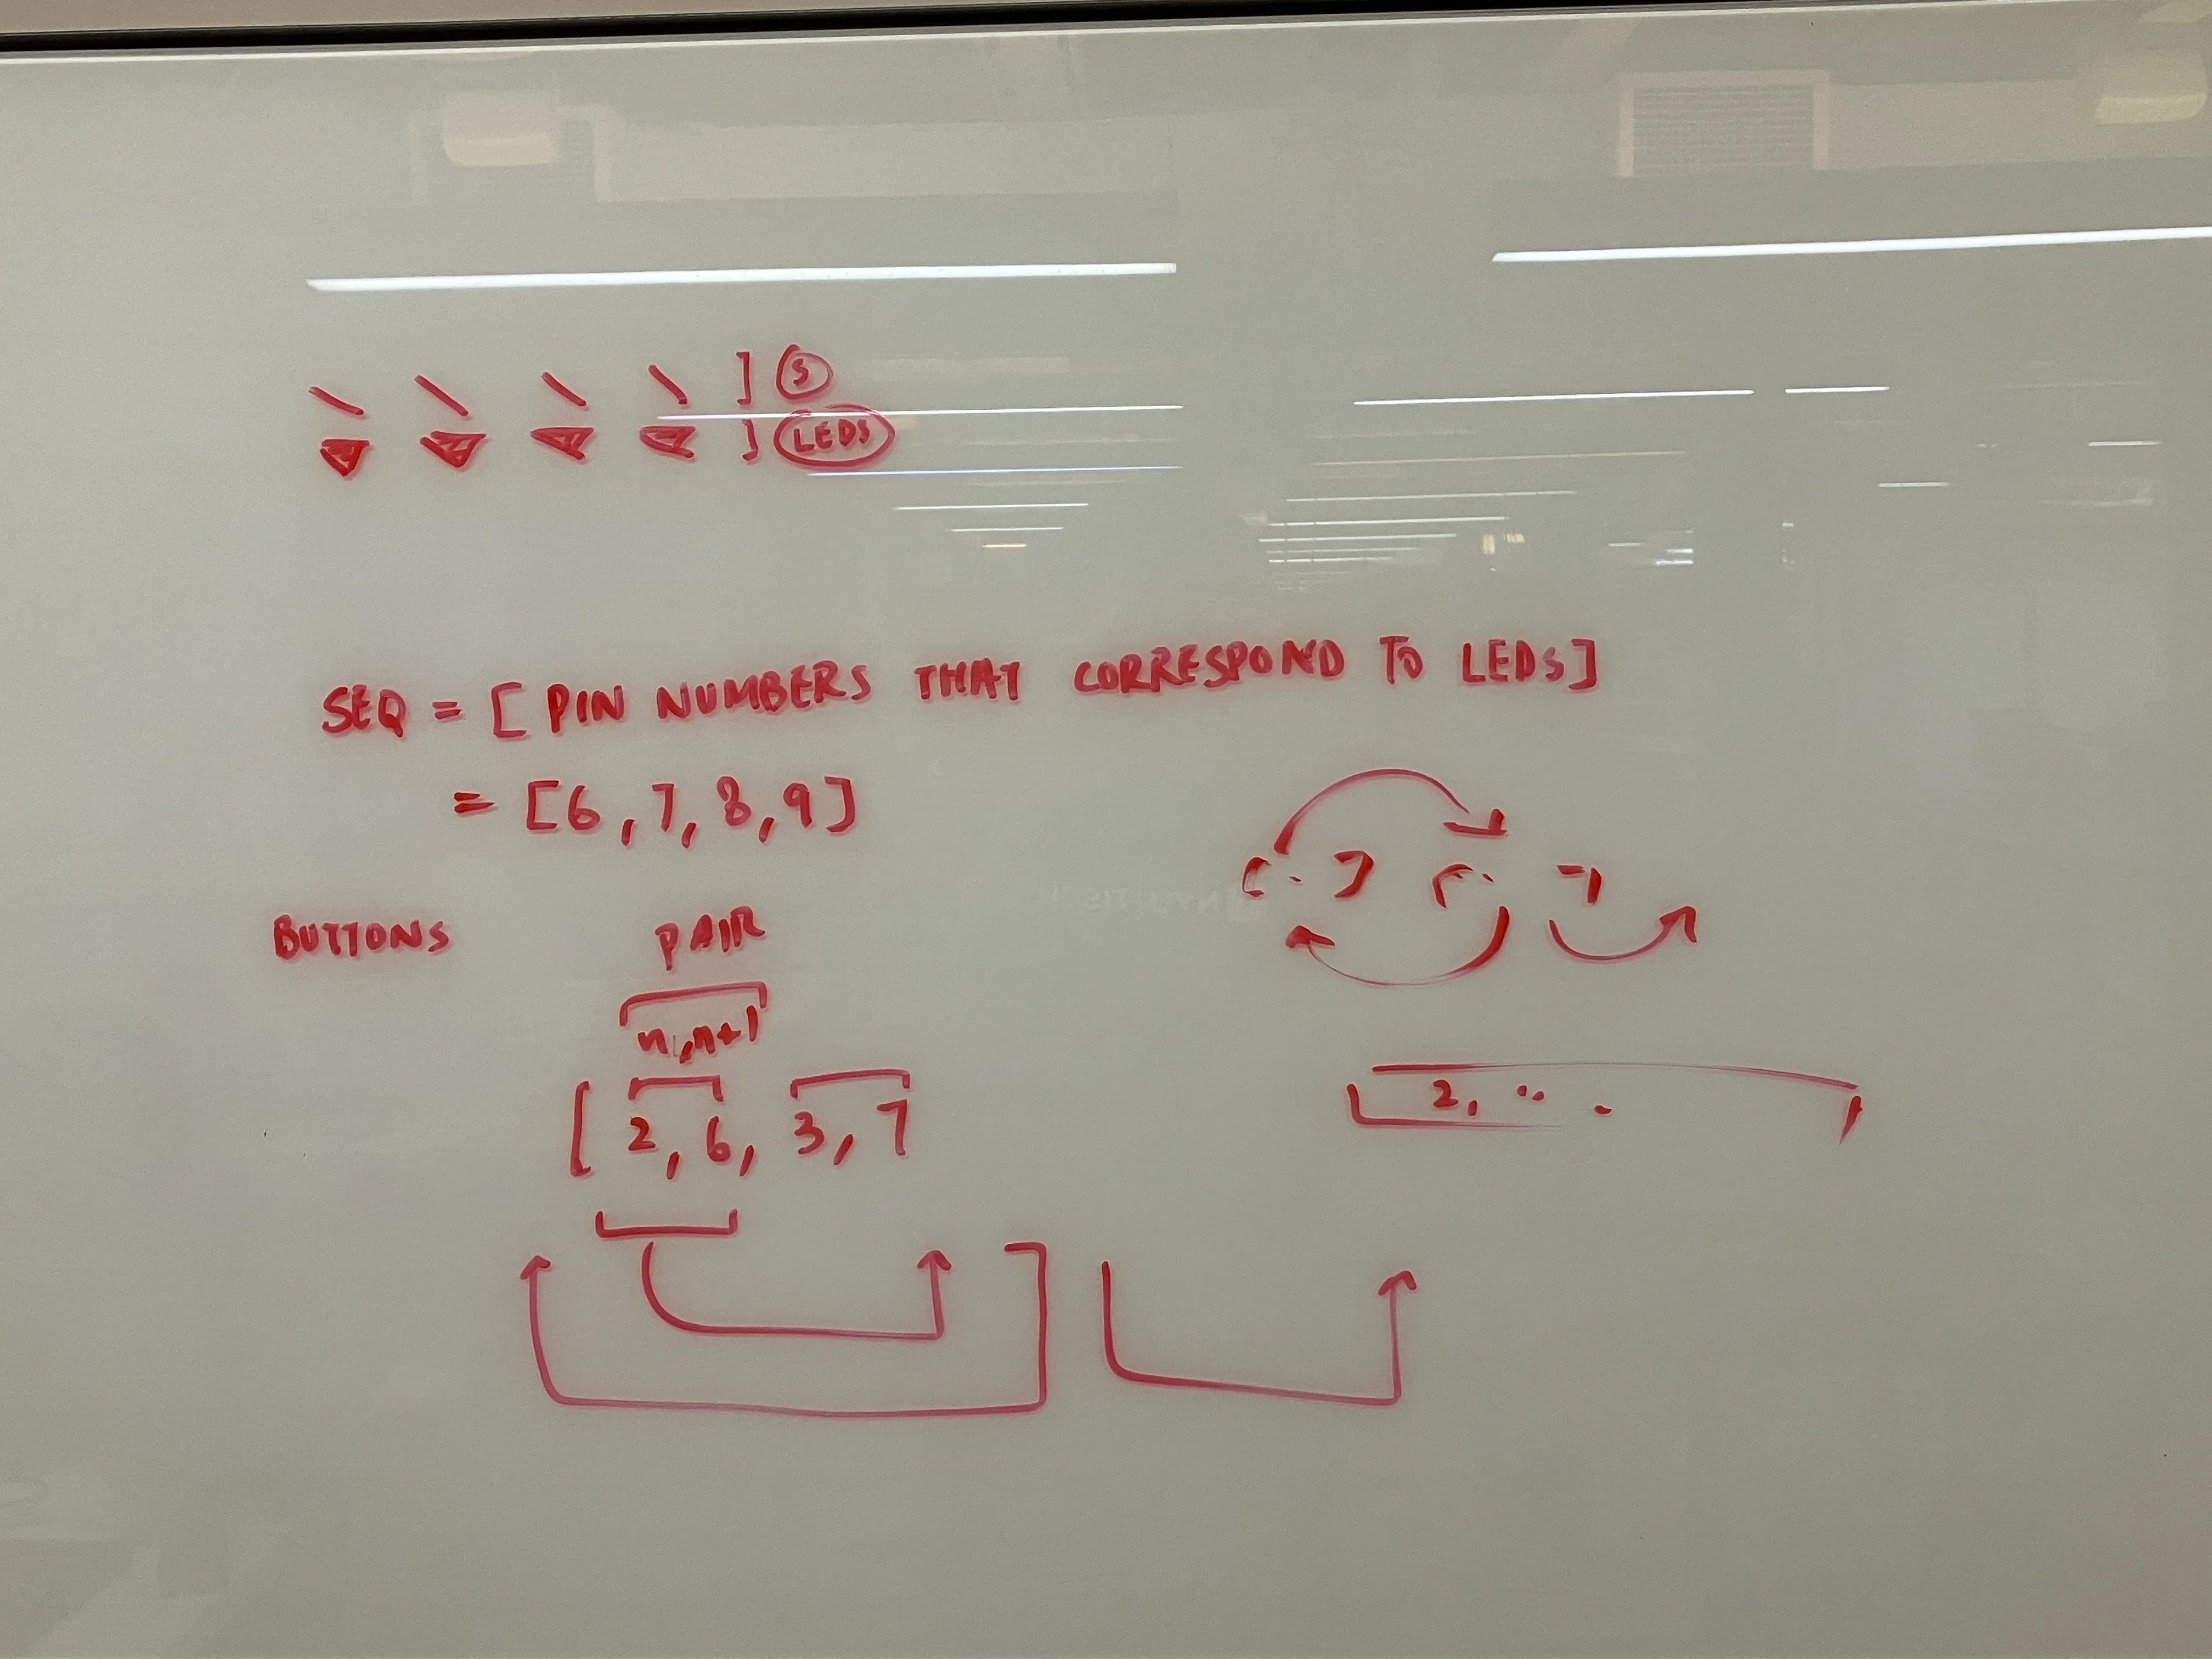 ] S
] LEDS
SEQ = [ PIN NUMBERS THAT CORRESPOND TO LEDS]
= [6, 7, 8, 9]
BUTTONS
PAIR
n, n+1
[ 2, 6, 3, 7
[.. ] [.. ]
2, ...